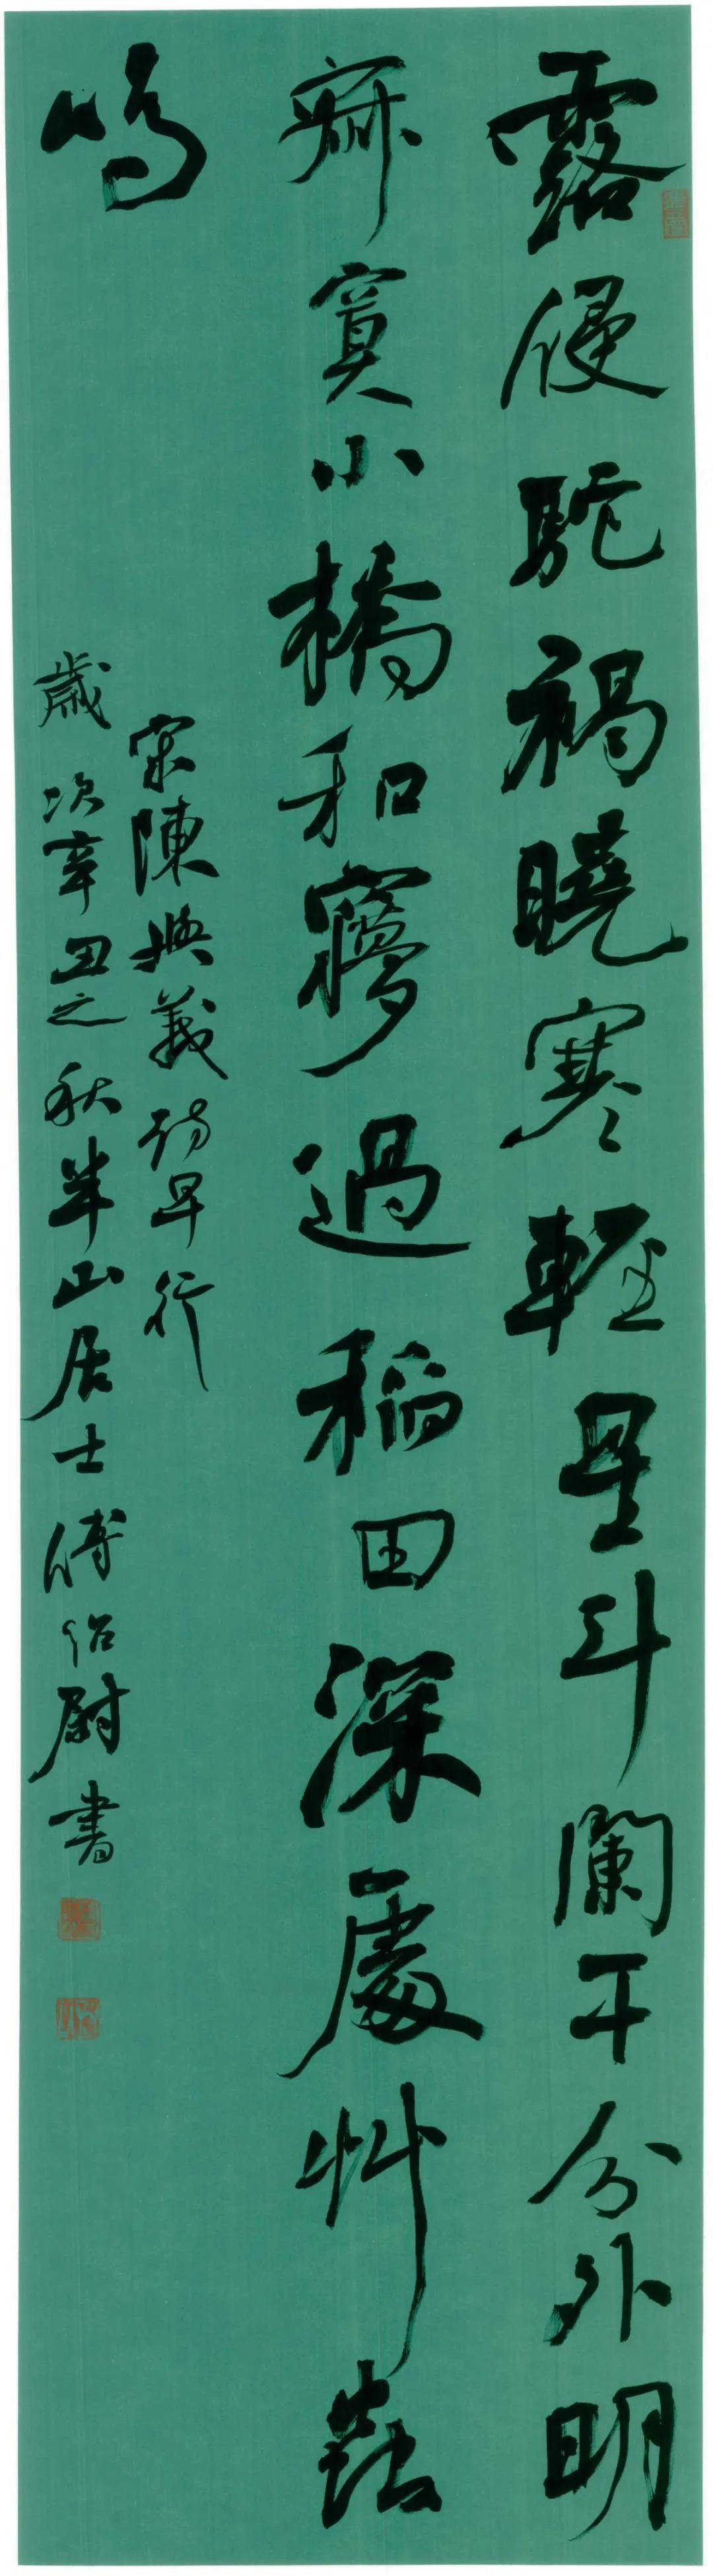 露侵駝褐曉寒輕星斗闌干分外明
寂寞小橋和夢過稻田深處艸蟲
鳴
宋陳與義詩早行
歲次辛丑之秋半山居士傅紹尉書